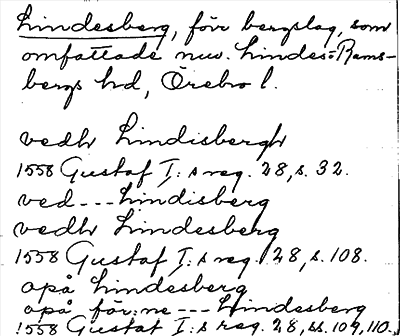 Lindesberg, förr bergslag, som
omfattade nuv. Lindes- o Rams-
bergs hd, Örebro l.
vedh Lindisbergh
1558 Gustaf I:s reg. 28, s. 32.
ved --- Lindisberg
vedh Lindesberg
1558 Gustaf I:s reg. 28, s. 108.
opå Lindesberg
opå för:ne --- Lindesberg
1558 Gustaf I:s reg. 28, ss. 109, 110.